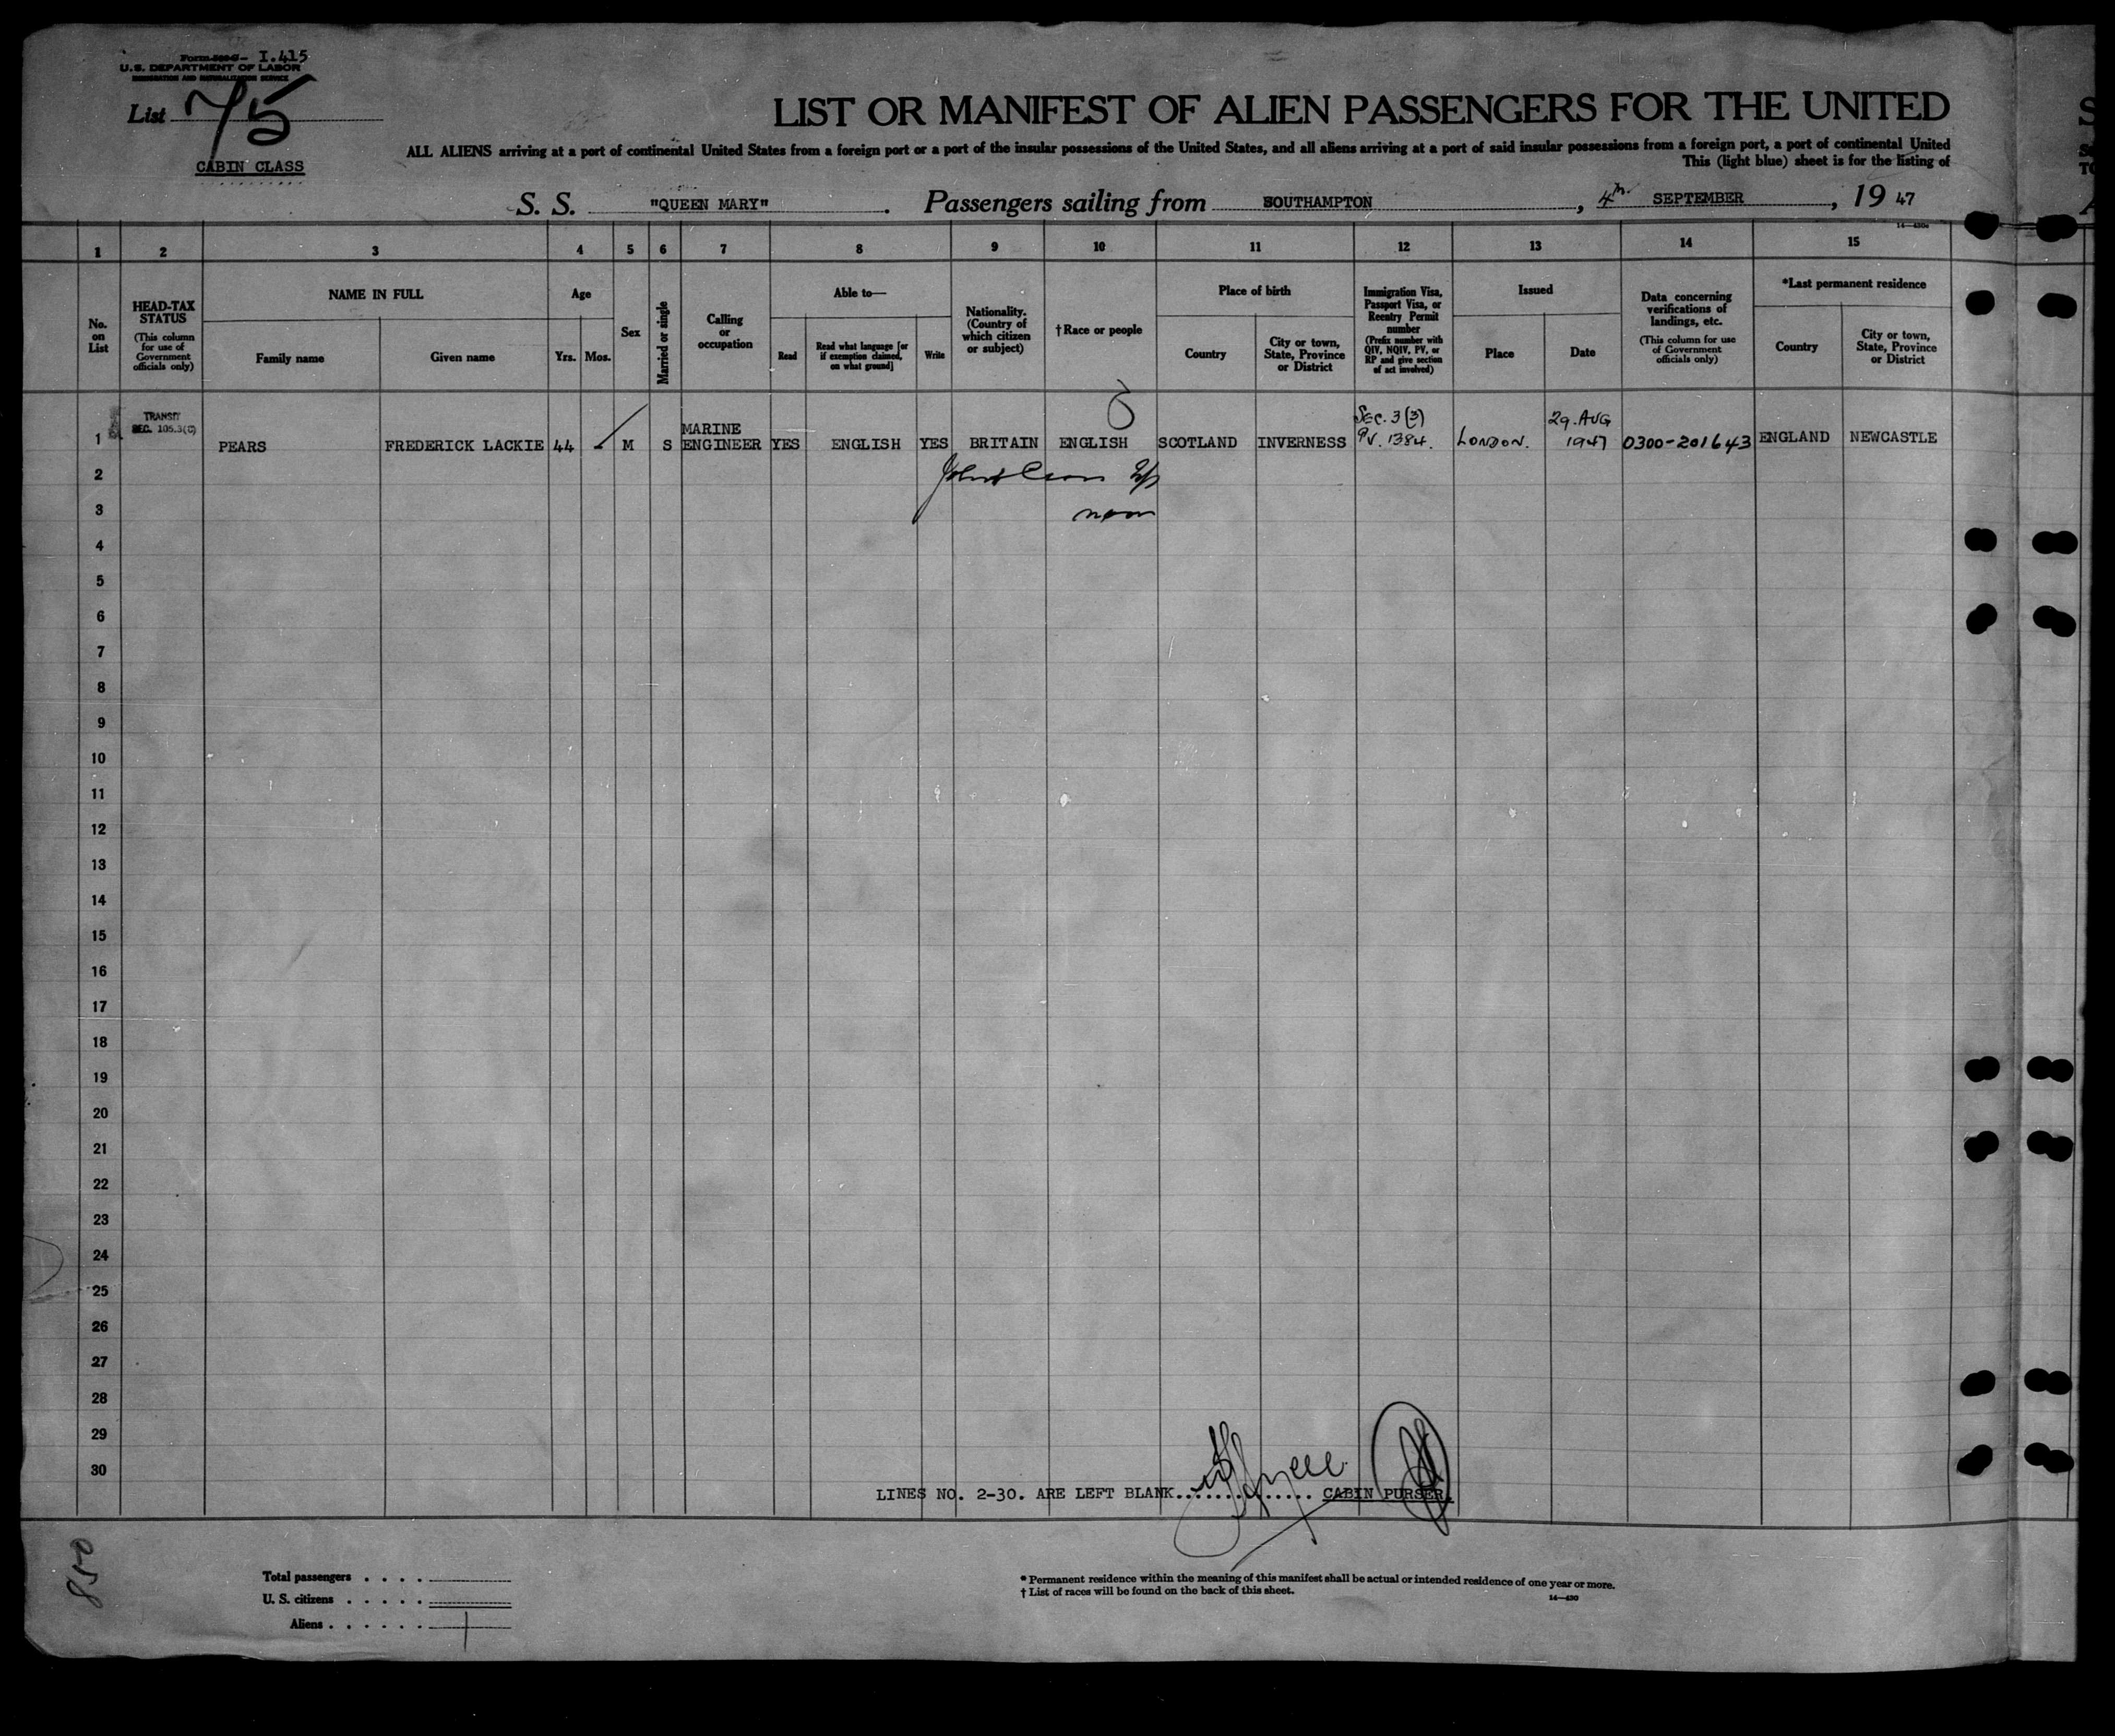 Form 500-G- I.415
U.S. DEPARTMENT OF LABOR
IMMIGRATION AND NATURALIZATION SERVICE
List 75
CABIN CLASS
LIST OR MANIFEST OF ALIEN PASSENGERS FOR THE UNITED
ALL ALIENS arriving at a port of continental United States from a foreign port or a port of the insular possessions of the United States, and all aliens arriving at a port of said insular possessions from a foreign port, a port of continental United
This (light blue) sheet is for the listing of
S. S. "QUEEN MARY". Passengers sailing from SOUTHAMPTON, 4th SEPTEMBER, 1947
1 2 3 4 5 6 7 8 9 10 11 12 13 14 15
No. on List
HEAD-TAX STATUS
(This column for use of Government officials only)
NAME IN FULL
Family name
Given name
Age
Yrs. Mos.
Sex
Married or single
Calling or occupation
Able to—
Read
Read what language [or if exemption claimed, on what ground]
Write
Nationality. (Country of which citizen or subject)
†Race or people
Place of birth
Country
City or town, State, Province or District
Immigration Visa, Passport Visa, or Reentry Permit number
(Prefix number with QIV, NQIV, PV, or RP and give section of act involved)
Issued
Place
Date
Data concerning verifications of landings, etc.
(This column for use of Government officials only)
*Last permanent residence
Country
City or town, State, Province or District
1 TRANSIT SEC. 105.3(C) PEARS FREDERICK LACKIE 44 - M S MARINE ENGINEER YES ENGLISH YES BRITAIN ENGLISH SCOTLAND INVERNESS SEC. 3(3) PV. 1384. LONDON. 29. AUG 1947 0300-201643 ENGLAND NEWCASTLE
2
3
4
5
6
7
8
9
10
11
12
13
14
15
16
17
18
19
20
21
22
23
24
25
26
27
28
29
30
LINES NO. 2-30. ARE LEFT BLANK................ CABIN PURSER.
850
Total passengers . . . .
U. S. citizens . . . . .
Aliens . . . . . . 1
* Permanent residence within the meaning of this manifest shall be actual or intended residence of one year or more.
† List of races will be found on the back of this sheet.
14—430